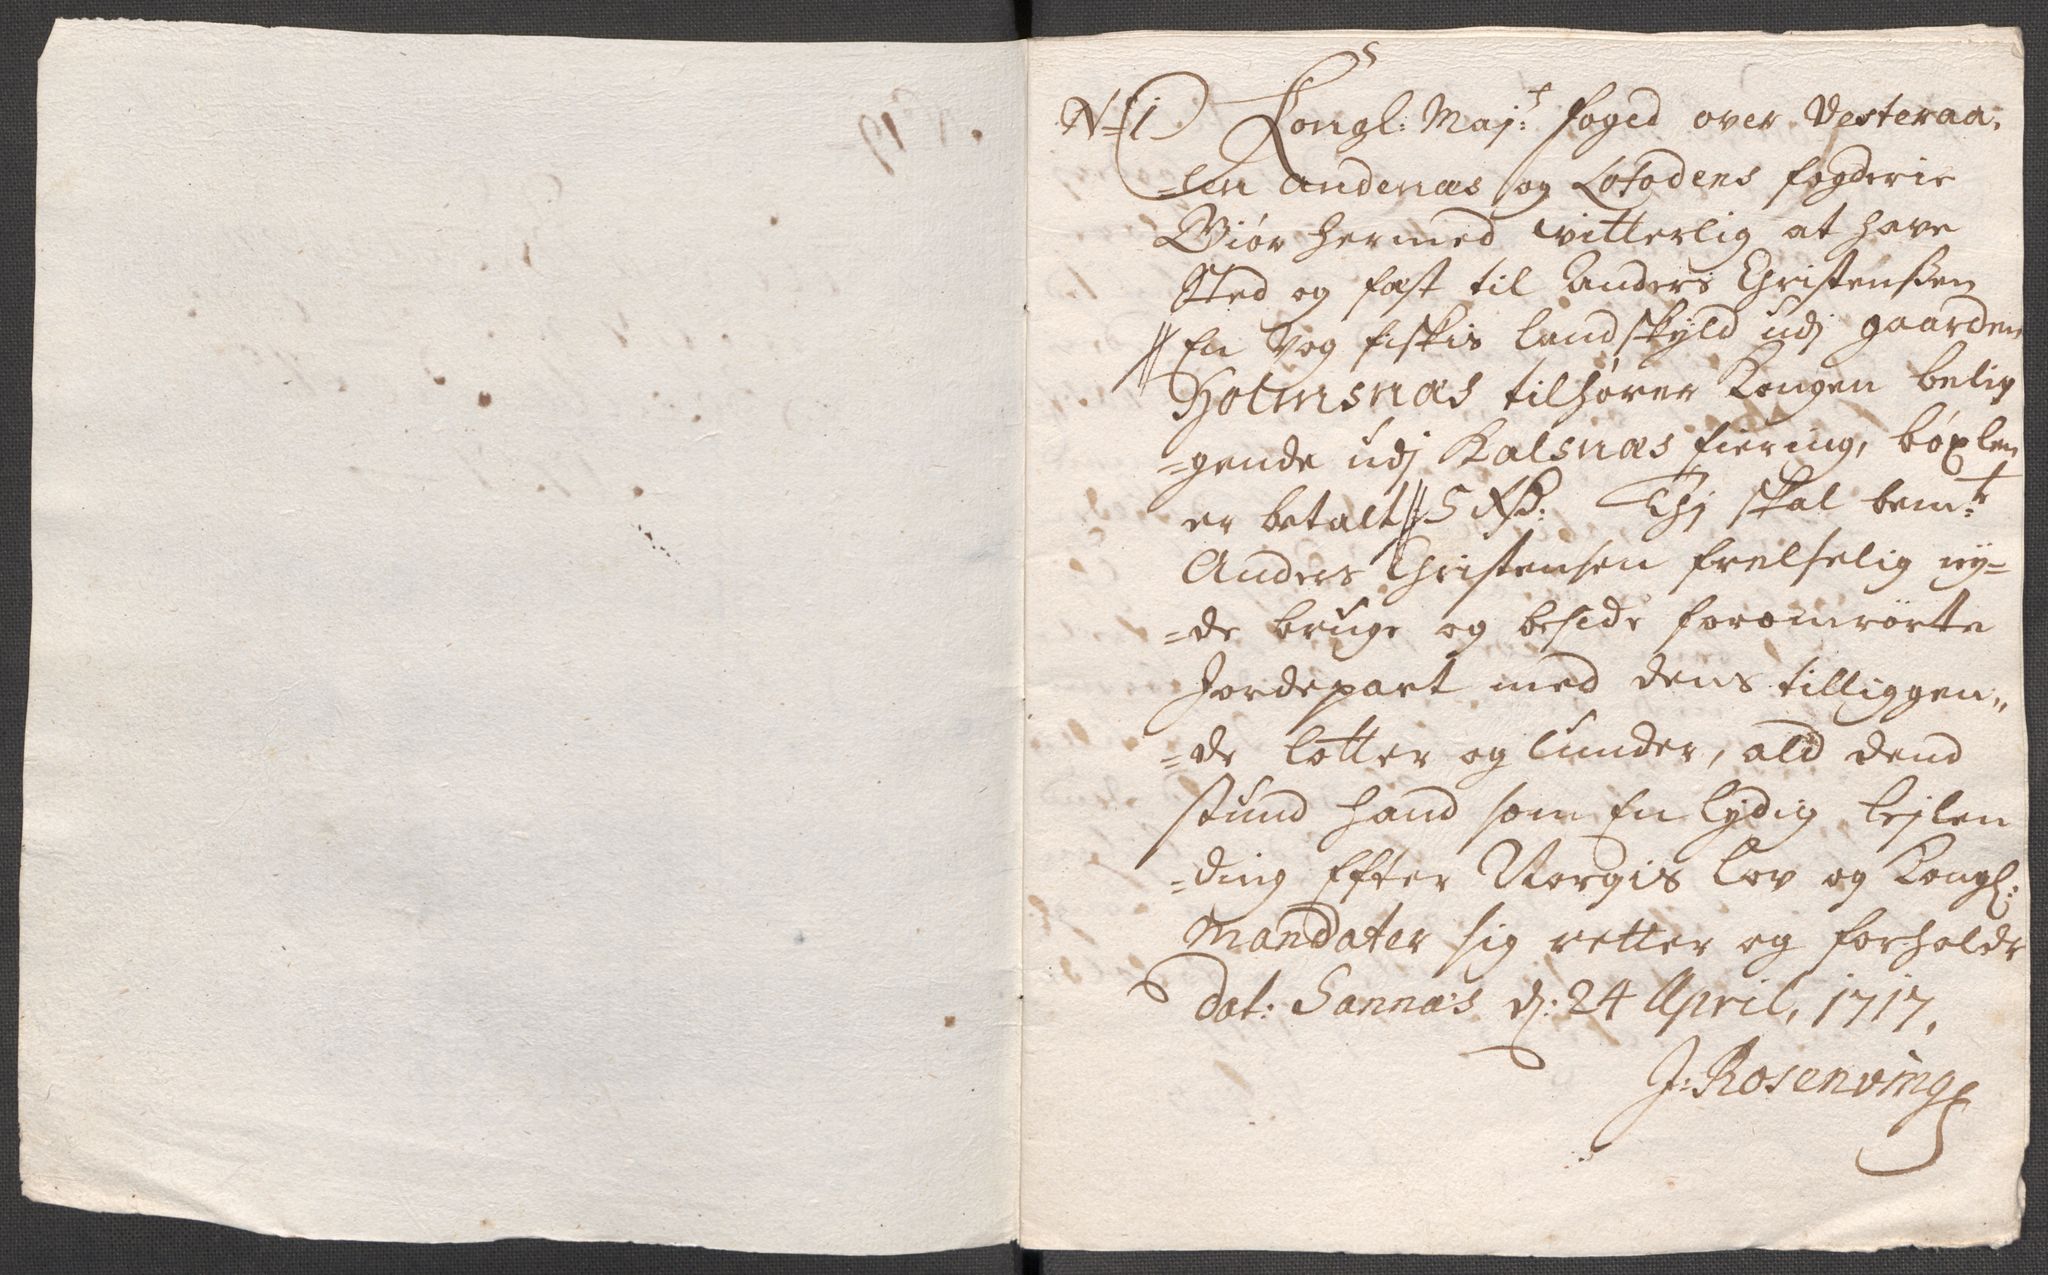 N: 1 Kongl: Maj:t foged over Vesteraa-
=len Andenæs og Lofodens fogderie
Giør hermed vitterlig at have
Sted og fæst til Anders Christensen
// En Vog fiskis landskyld udj gaarden
Holmsnæs tilhører Kongen belig
=gende udj Kalsnæs fiering, bøxlen
er betalt // 5 Rd: Thj skal bem:te
Anders Christensen frelselig ny=
=de bruge og beside foromrörte
Jordepart med dens tilliggen„
=de lotter og lunder, ald dend
stund hand som En lydig lejlen
=ding Efter Norgis lov og Kongl:
Mandater sig retter og forholdr
dat: Sannæs d: 24 April, 1717.
J: Rosenvinge